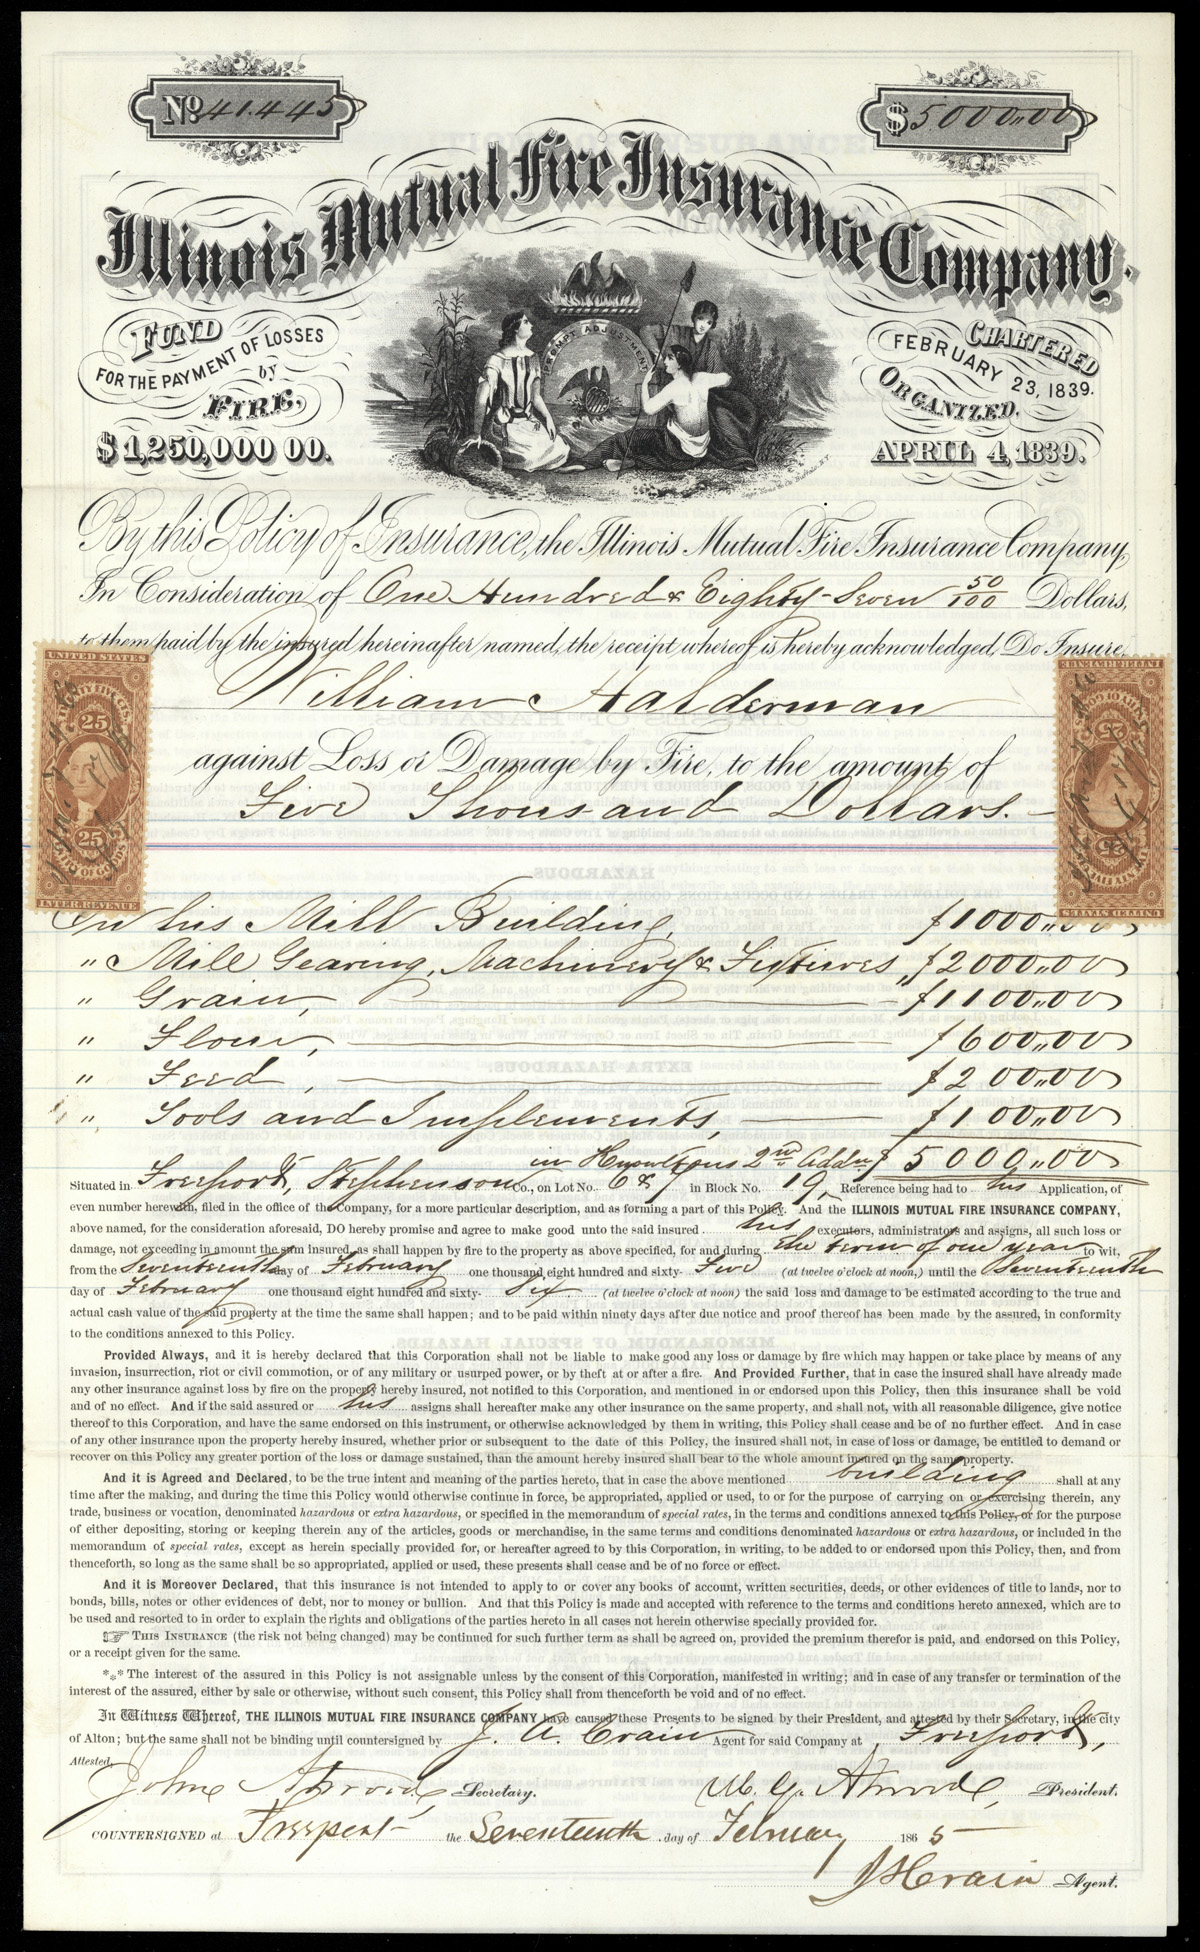 No 41.445
$5000.00
Illinois Mutual Fire Insurance Company.
FUND
FOR THE PAYMENT OF LOSSES
by
FIRE,
$1,250,000 00.
PROMPT ADJUSTMENT
CHARTERED
FEBRUARY 23, 1839.
ORGANIZED.
APRIL 4, 1839.
By this Policy of Insurance, the Illinois Mutual Fire Insurance Company,
In Consideration of One Hundred & Eighty-Seven 50/100 Dollars,
to them paid by the insured hereinafter named, the receipt whereof is hereby acknowledged, Do Insure,
William Halderman
against Loss or Damage by Fire, to the amount of
Five Thousand Dollars.
UNITED STATES
25
25
INTER. REVENUE
INTER. REVENUE
25
25
UNITED STATES
On his Mill Building, $1000.00
" Mill Gearing, Machinery & Fixtures, $2000.00
" Grain, $1100.00
" Flour, $600.00
" Feed, $200.00
" Tools and Implements, $100.00
in Knowltons 2nd Addn $5000.00
Situated in Freeport, Stephenson Co., on Lot No. 6 & 7 in Block No. 19, Reference being had to his Application, of
even number herewith, filed in the office of the Company, for a more particular description, and as forming a part of this Policy. And the ILLINOIS MUTUAL FIRE INSURANCE COMPANY,
above named, for the consideration aforesaid, DO hereby promise and agree to make good unto the said insured his executors, administrators and assigns, all such loss or
damage, not exceeding in amount the sum insured, as shall happen by fire to the property as above specified, for and during the term of one year to wit,
from the Seventeenth day of February one thousand eight hundred and sixty- Five (at twelve o'clock at noon,) until the Seventeenth
day of February one thousand eight hundred and sixty- Six (at twelve o'clock at noon) the said loss and damage to be estimated according to the true and
actual cash value of the said property at the time the same shall happen; and to be paid within ninety days after due notice and proof thereof has been made by the assured, in conformity
to the conditions annexed to this Policy.
Provided Always, and it is hereby declared that this Corporation shall not be liable to make good any loss or damage by fire which may happen or take place by means of any
invasion, insurrection, riot or civil commotion, or of any military or usurped power, or by theft at or after a fire. And Provided Further, that in case the insured shall have already made
any other insurance against loss by fire on the property hereby insured, not notified to this Corporation, and mentioned in or endorsed upon this Policy, then this insurance shall be void
and of no effect. And if the said assured or his assigns shall hereafter make any other insurance on the same property, and shall not, with all reasonable diligence, give notice
thereof to this Corporation, and have the same endorsed on this instrument, or otherwise acknowledged by them in writing, this Policy shall cease and be of no further effect. And in case
of any other insurance upon the property hereby insured, whether prior or subsequent to the date of this Policy, the insured shall not, in case of loss or damage, be entitled to demand or
recover on this Policy any greater portion of the loss or damage sustained, than the amount hereby insured shall bear to the whole amount insured on the same property.
And it is Agreed and Declared, to be the true intent and meaning of the parties hereto, that in case the above mentioned building shall at any
time after the making, and during the time this Policy would otherwise continue in force, be appropriated, applied or used, to or for the purpose of carrying on or exercising therein, any
trade, business or vocation, denominated hazardous or extra hazardous, or specified in the memorandum of special rates, in the terms and conditions annexed to this Policy, or for the purpose
of either depositing, storing or keeping therein any of the articles, goods or merchandise, in the same terms and conditions denominated hazardous or extra hazardous, or included in the
memorandum of special rates, except as herein specially provided for, or hereafter agreed to by this Corporation, in writing, to be added to or endorsed upon this Policy, then, and from
thenceforth, so long as the same shall be so appropriated, applied or used, these presents shall cease and be of no force or effect.
And it is Moreover Declared, that this insurance is not intended to apply to or cover any books of account, written securities, deeds, or other evidences of title to lands, nor to
bonds, bills, notes or other evidences of debt, nor to money or bullion. And that this Policy is made and accepted with reference to the terms and conditions hereto annexed, which are to
be used and resorted to in order to explain the rights and obligations of the parties hereto in all cases not herein otherwise specially provided for.
☞ THIS INSURANCE (the risk not being changed) may be continued for such further term as shall be agreed on, provided the premium therefor is paid, and endorsed on this Policy,
or a receipt given for the same.
*** The interest of the assured in this Policy is not assignable unless by the consent of this Corporation, manifested in writing; and in case of any transfer or termination of the
interest of the assured, either by sale or otherwise, without such consent, this Policy shall from thenceforth be void and of no effect.
In Witness Whereof, THE ILLINOIS MUTUAL FIRE INSURANCE COMPANY have caused these Presents to be signed by their President, and attested by their Secretary, in the city
of Alton; but the same shall not be binding until countersigned by J. A. Crain Agent for said Company at Freeport,
Attested,
John Atwood, Secretary. M. G. Atwood, President.
COUNTERSIGNED at Freeport the Seventeenth day of February 1865
J A Crain Agent.